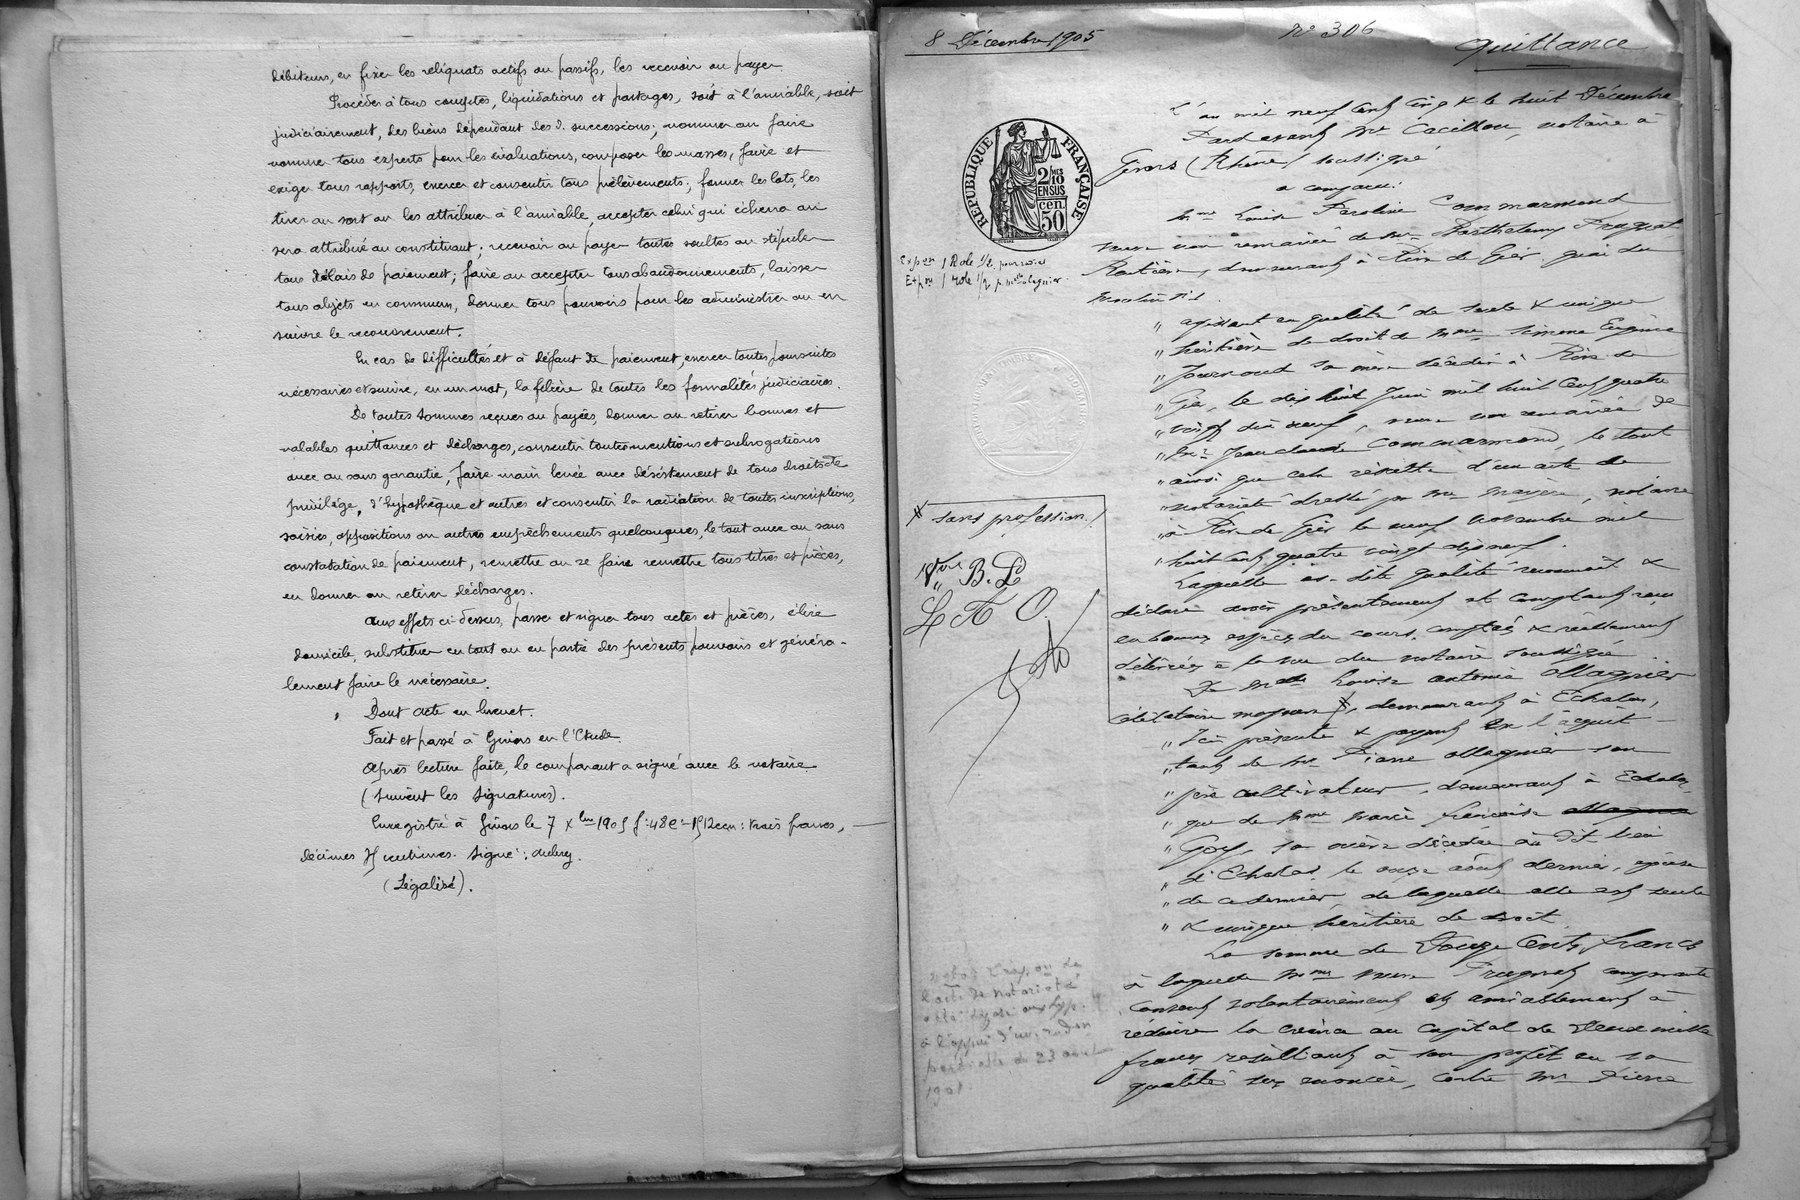 débiteurs, en fixer les reliquats actifs ou passifs, les recevoir ou payer.
Procéder à tous comptes, liquidations et partages, soit à l'amiable, soit
judiciairement, des biens dépendant des d. successions; nommer ou faire
nommer tous experts pour les évaluations, composer les masses, faire et
exiger tous rapports, exercer et consentir tous prélèvements; former les lots, les
tirer au sort ou les attribuer à l'amiable, accepter celui qui écherra ou
sera attribué au constituant; recevoir ou payer toutes soultes ou stipuler
tous délais de paiement; faire ou accepter tous abandonnements, laisser
tous objets en commun, donner tous pouvoirs pour les administrer ou en
suivre le recouvrement.
En cas de difficultés et à défaut de paiement, exercer toutes poursuites
nécessaires et suivre, en un mot, la filière de toutes les formalités judiciaires.
De toutes sommes reçues ou payées, donner ou retirer bonnes et
valables quittances et décharges, consentir toutes mentions et subrogations
avec ou sans garantie, faire main levée avec désistement de tous droits de
privilège, d'hypothèque et autres et consentir la radiation de toutes inscriptions,
saisies, oppositions ou autres empêchements quelconques, le tout avec ou sans
constatation de paiement, remettre ou se faire remettre tous titres et pièces,
en donner ou retirer décharges.
Aux effets ci-dessus, passer et signer tous actes et pièces, élire
domicile, substituer en tout ou en partie des présents pouvoirs et généra-
lement faire le nécessaire.
Dont acte en brevet.
Fait et passé à Givors en l'Etude.
Après lecture faite, le comparant a signé avec le notaire.
(Suivent les signatures).
Enregistré à Givors le 7 Xbre 1905 f° 48 trois francs,
décimes centimes. Signé: Aubry.
(Légalisé).
8 Décembre 1905
N° 306
Quittance
RÉPUBLIQUE FRANÇAISE
2/10 MES EN SUS
50 cen.
L'an mil neuf cent cinq & le huit Décembre
Pardevant Me Cacillon, notaire à
Givors (Rhône) soussigné
a comparu:
Mme Louise Caroline Commarmond
veuve non remariée de Mr Barthélemy Prugnat
Rentière, demeurant à Rive de Gier quai du
" agissant en qualité de seule & unique
" héritière de droit de Mme Simone Eugénie
" Journoud sa mère décédée à Rive de
" Gier, le dix huit Juin mil huit cent quatre
" vingt dix neuf, veuve non remariée de
" Mr Jean Claude Commarmond, le tout
" ainsi que cela résulte d'un acte de
" notoriété dressé par Me notaire
" à Rive de Gier le neuf novembre mil
" huit cent quatre vingt dix neuf.
Laquelle ès-dite qualité reconnaît &
déclare avoir présentement et comptant reçu
en bonnes espèces du cours, comptées & réellement
délivrées à la vue du notaire soussigné
De Melle Louise Antonia Magnier
célibataire majeure X, demeurant à Echalas,
" Ici présente & payant en l'acquit
" tant de Mr Pierre Magnier son
" père cultivateur, demeurant à Echalas,
" que de Mme Marie Françoise
" Goy, sa mère décédée au dit lieu
" d'Echalas, le onze août dernier, épouse
" de ce dernier, de laquelle elle est seule
" & unique héritière de droit
La somme de Douze Cents francs
à laquelle Mme veuve Prugnat comparante
consent volontairement et amiablement à
réduire la créance au capital de Deux mille
francs résultant à son profit en sa
qualité sus énoncée, contre Mr Pierre
Expon 1 Role 1/2 pour
Expon 1 role 1/2 p. Melle Magnier
X sans profession /
Vve B. P
L A O.
l'acte de notoriété
à l'appui d'une
partielle du 23 août
1901